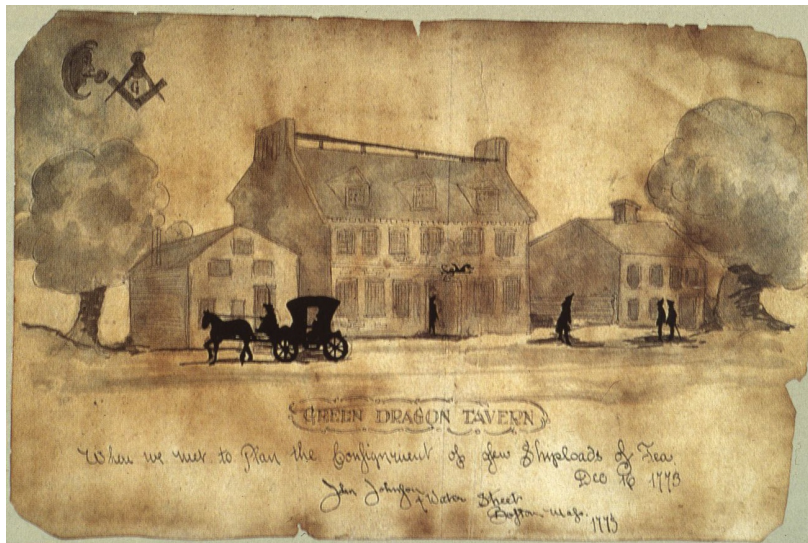 G
GREEN DRAGON TAVERN
Where we met to Plan the Consignment of a few Shiploads of Tea
Dec 16 1773
John Johnson 4 Water Street
Boston Mass. 1773